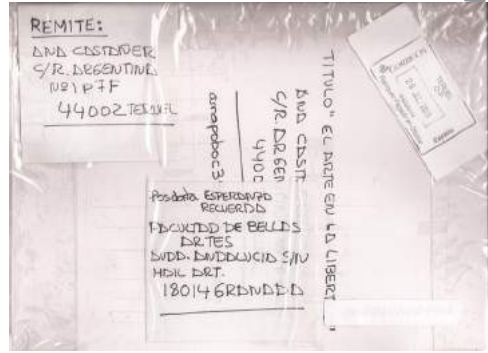 REMITE:
ANA CASTAÑER
C/R. ARGENTINA
Nº1 P7F
44002 TERUEL
TITULO "EL ARTE EN LA LIBERT
ANA CAST
C/R. ARGEN
4400
anapoboc3
Posdata ESPERANZA
RECUERDA
FACULTAD DE BELLAS
ARTES
AVDA. ANDALUCIA S/N
HDIL ART.
18014 GRANADA